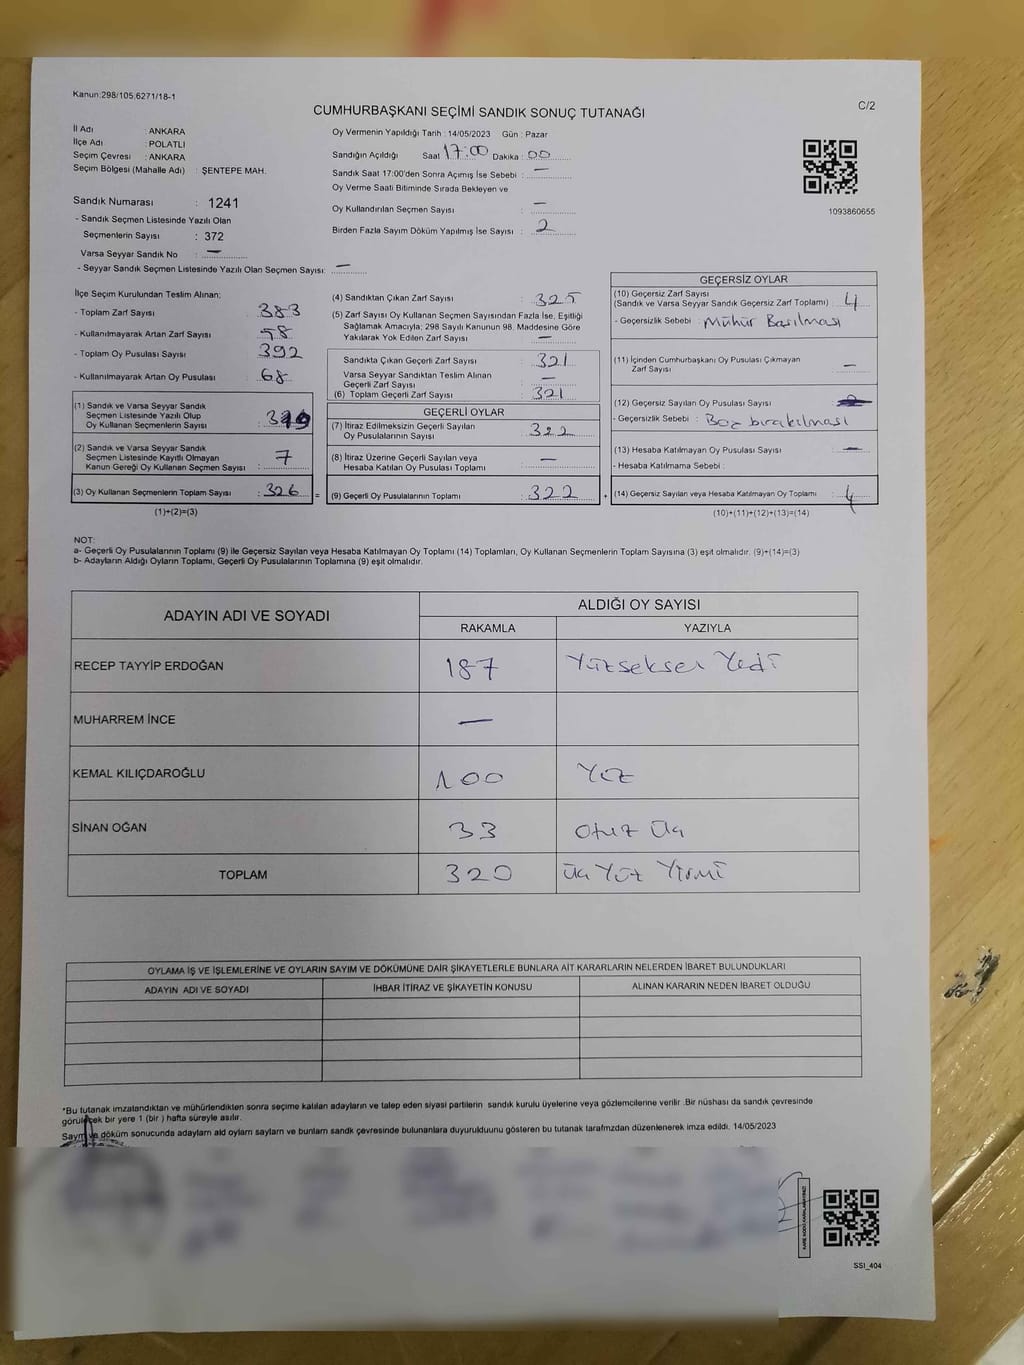 Kanun:298/105,6271/18-1
C/2
CUMHURBAŞKANI SEÇİMİ SANDIK SONUÇ TUTANAĞI
İl Adı : ANKARA
İlçe Adı : POLATLI
Seçim Çevresi : ANKARA
Seçim Bölgesi (Mahalle Adı) : ŞENTEPE MAH.
Sandık Numarası : 1241
- Sandık Seçmen Listesinde Yazılı Olan
Seçmenlerin Sayısı : 372
Varsa Seyyar Sandık No : —
- Seyyar Sandık Seçmen Listesinde Yazılı Olan Seçmen Sayısı: —
Oy Vermenin Yapıldığı Tarih : 14/05/2023 Gün : Pazar
Sandığın Açıldığı Saat 17:00 Dakika : 00
Sandık Saat 17:00'den Sonra Açımış İse Sebebi : —
Oy Verme Saati Bitiminde Sırada Bekleyen ve
Oy Kullandırılan Seçmen Sayısı : —
Birden Fazla Sayım Döküm Yapılmış İse Sayısı : 2
1093860655
İlçe Seçim Kurulundan Teslim Alınan;
- Toplam Zarf Sayısı : 383
- Kullanılmayarak Artan Zarf Sayısı : 58
- Toplam Oy Pusulası Sayısı : 392
- Kullanılmayarak Artan Oy Pusulası : 68
(1) Sandık ve Varsa Seyyar Sandık
Seçmen Listesinde Yazılı Olup
Oy Kullanan Seçmenlerin Sayısı : 319
(2) Sandık ve Varsa Seyyar Sandık
Seçmen Listesinde Kayıtlı Olmayan
Kanun Gereği Oy Kullanan Seçmen Sayısı : 7
(3) Oy Kullanan Seçmenlerin Toplam Sayısı : 326 =
(1)+(2)=(3)
(4) Sandıktan Çıkan Zarf Sayısı : 325
(5) Zarf Sayısı Oy Kullanan Seçmen Sayısından Fazla İse, Eşitliği
Sağlamak Amacıyla; 298 Sayılı Kanunun 98. Maddesine Göre
Yakılarak Yok Edilen Zarf Sayısı : —
Sandıkta Çıkan Geçerli Zarf Sayısı : 321
Varsa Seyyar Sandıktan Teslim Alınan
Geçerli Zarf Sayısı : —
(6) Toplam Geçerli Zarf Sayısı : 321
GEÇERLİ OYLAR
(7) İtiraz Edilmeksizin Geçerli Sayılan
Oy Pusulalarının Sayısı : 322
(8) İtiraz Üzerine Geçerli Sayılan veya
Hesaba Katılan Oy Pusulası Toplamı : —
(9) Geçerli Oy Pusulalarının Toplamı : 322 +
GEÇERSİZ OYLAR
(10) Geçersiz Zarf Sayısı
(Sandık ve Varsa Seyyar Sandık Geçersiz Zarf Toplamı) : 4
- Geçersizlik Sebebi : Mühür Basılması
(11) İçinden Cumhurbaşkanı Oy Pusulası Çıkmayan
Zarf Sayısı : —
(12) Geçersiz Sayılan Oy Pusulası Sayısı :
- Geçersizlik Sebebi : Boş bırakılması
(13) Hesaba Katılmayan Oy Pusulası Sayısı : —
- Hesaba Katılmama Sebebi :
(14) Geçersiz Sayılan veya Hesaba Katılmayan Oy Toplamı : 4
(10)+(11)+(12)+(13)=(14)
NOT:
a- Geçerli Oy Pusulalarının Toplamı (9) ile Geçersiz Sayılan veya Hesaba Katılmayan Oy Toplamı (14) Toplamları, Oy Kullanan Seçmenlerin Toplam Sayısına (3) eşit olmalıdır. (9)+(14)=(3)
b- Adayların Aldığı Oyların Toplamı, Geçerli Oy Pusulalarının Toplamına (9) eşit olmalıdır.
ADAYIN ADI VE SOYADI
ALDIĞI OY SAYISI
RAKAMLA YAZIYLA
RECEP TAYYİP ERDOĞAN 187 Yüzseksen Yedi
MUHARREM İNCE —
KEMAL KILIÇDAROĞLU 100 Yüz
SİNAN OĞAN 33 Otuz Üç
TOPLAM 320 Üç Yüz Yirmi
OYLAMA İŞ VE İŞLEMLERİNE VE OYLARIN SAYIM VE DÖKÜMÜNE DAİR ŞİKAYETLERLE BUNLARA AİT KARARLARIN NELERDEN İBARET BULUNDUKLARI
ADAYIN ADI VE SOYADI İHBAR İTİRAZ VE ŞİKAYETİN KONUSU ALINAN KARARIN NEDEN İBARET OLDUĞU
*Bu tutanak imzalandıktan ve mühürlendikten sonra seçime katılan adayların ve talep eden siyasi partilerin sandık kurulu üyelerine veya gözlemcilerine verilir .Bir nüshası da sandık çevresinde
görülecek bir yere 1 (bir ) hafta süreyle asılır.
Sayım ve döküm sonucunda adayların ald oyların saylarn ve bunlarn sandk çevresinde bulunanlara duyurulduunu gösteren bu tutanak tarafmzdan düzenlenerek imza edildi. 14/05/2023
KARE KODU KARALAMAYINIZ!
SSI_404